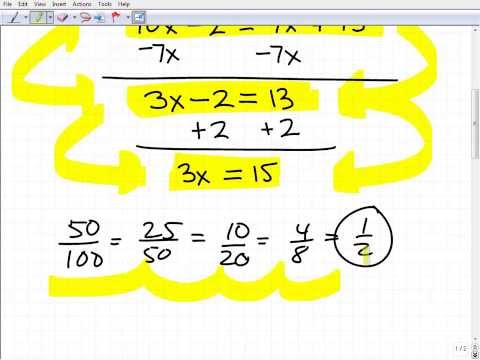 File Edit View Insert Actions Tools Help
10x - 2 = 7x + 13
-7x -7x
3x - 2 = 13
+2 +2
3x = 15
50/100 = 25/50 = 10/20 = 4/8 = 1/2
1 / 5